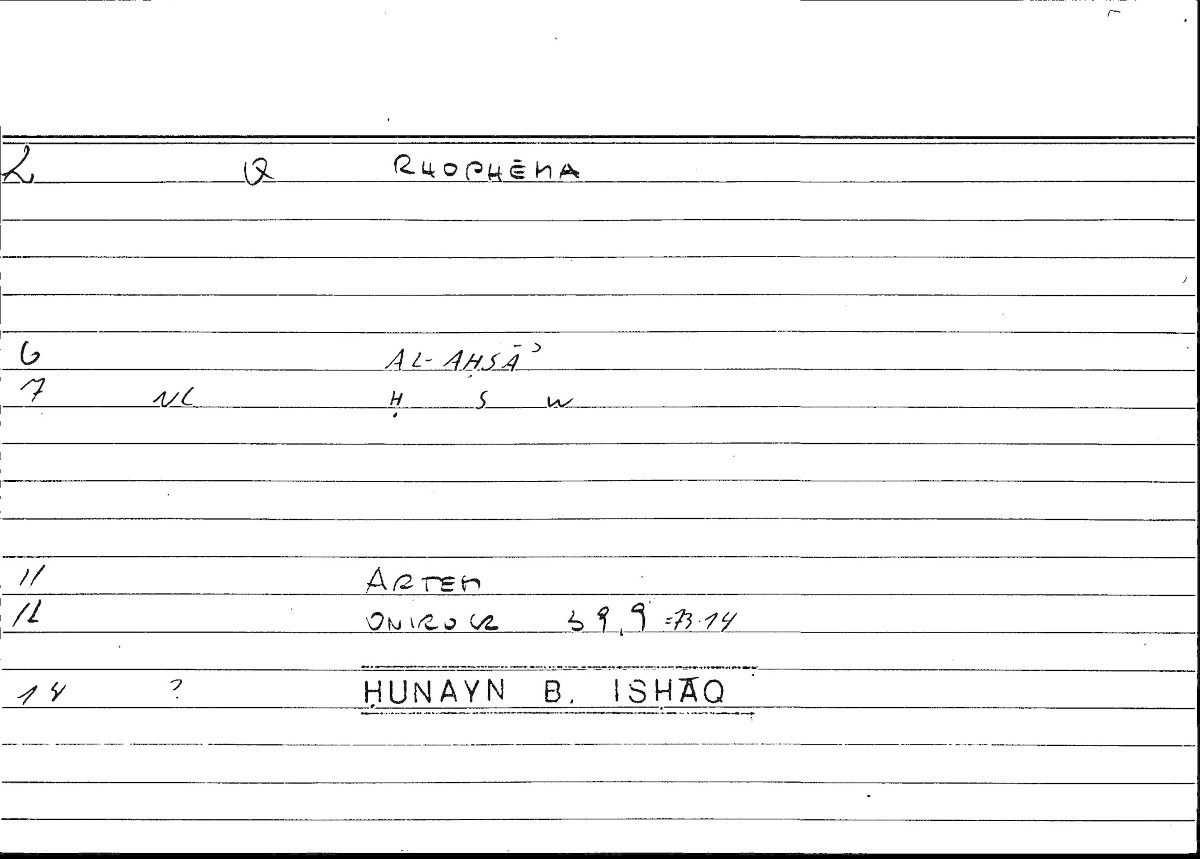 2 Q RHOPHĒMA
6 AL-AḤSĀʾ
7 NL Ḥ S W
11 ARTEM
12 ONIROCR 59,9 =73.14
14 ? ḤUNAYN B. ISḤĀQ